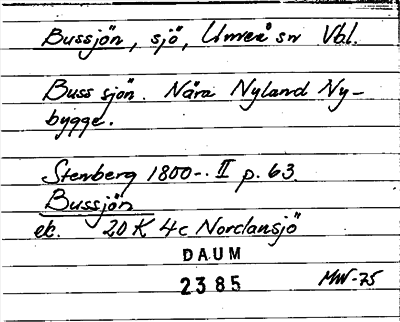 Bussjön, sjö, Umeå sn Vbl.
Bussjön. Nära Nyland Ny-
bygge.
Stenberg 1800-. II p. 63.
Bussjön
ek. 20 K 4c Nordansjö
DAUM
2385 MW-75